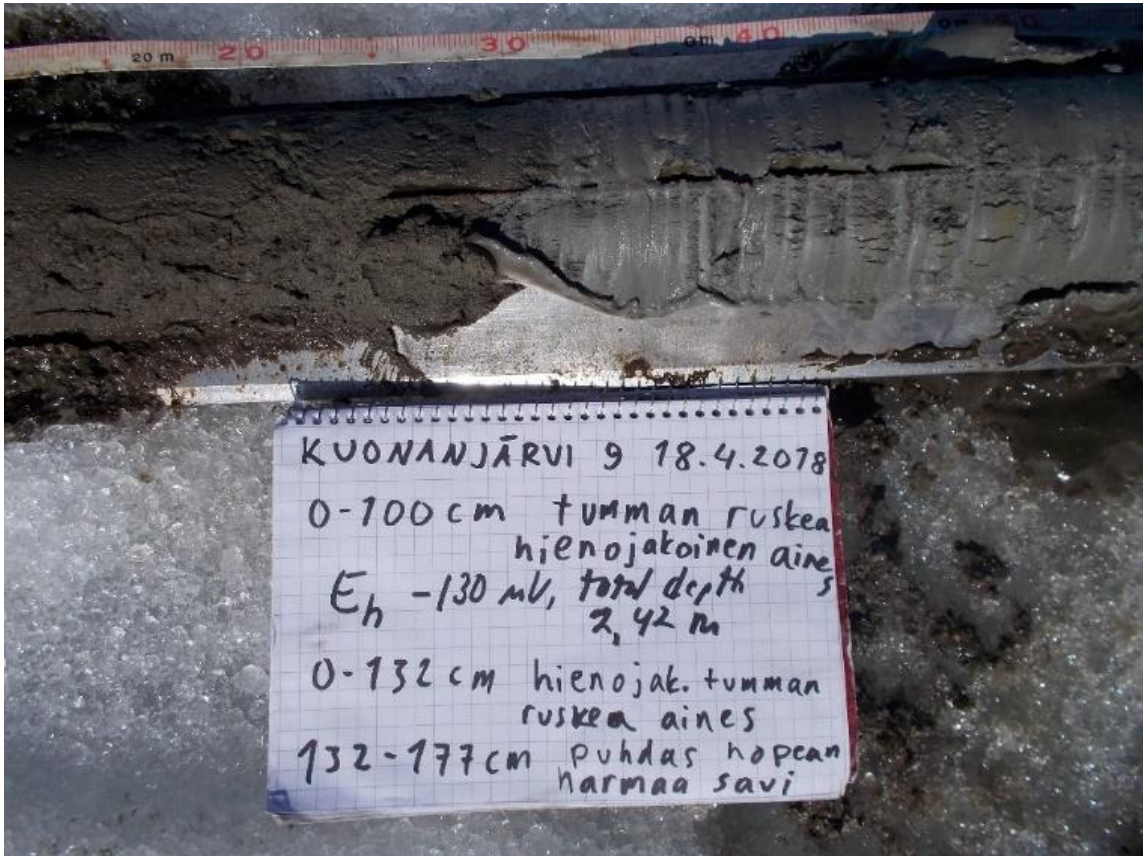 20 m 20 30 0m 40
KUONANJÄRVI 9 18.4.2018
0-100 cm tumman ruskea
hienojakoinen aines
Eh -130 mV, total depth
2,42 m
0-132 cm hienojak. tumman
ruskea aines
132-177 cm puhdas hopean
harmaa savi